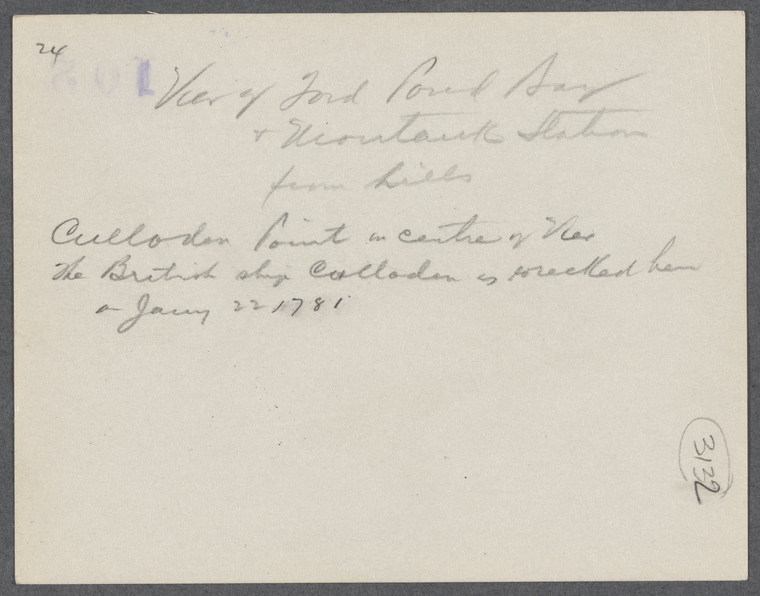 24
View of Ford Pond Bay
+ Montauk Station
from hills
Culloden Point in centre of View
The British ship Culloden is wrecked here
on Jany 22 1781
3132